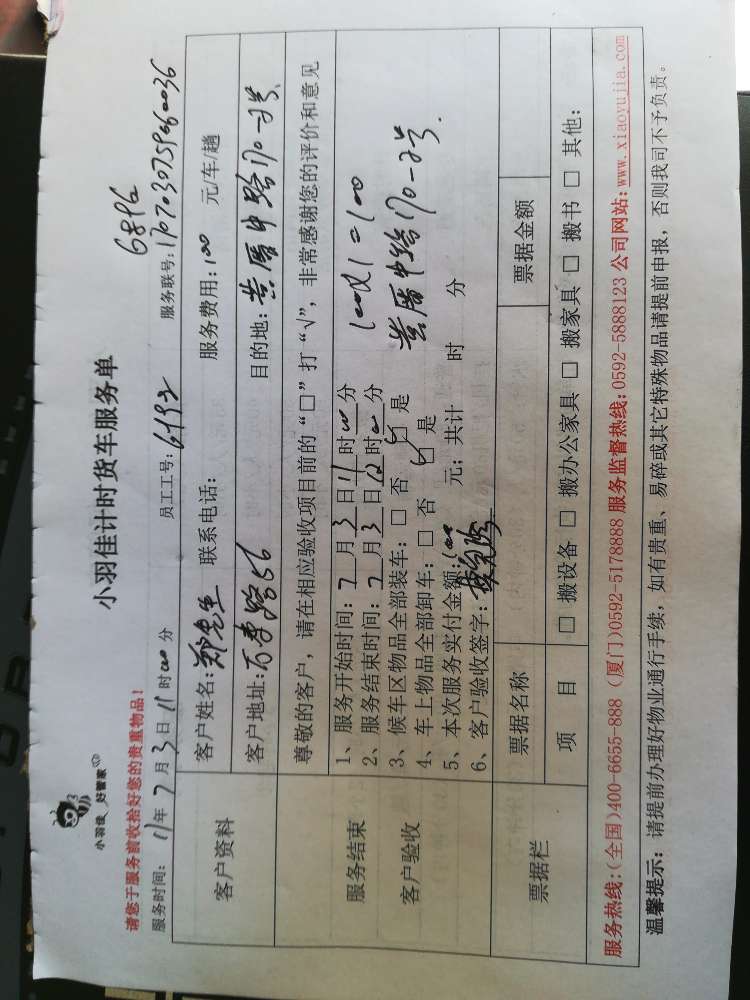 小羽佳 好管家
小羽佳计时货车服务单
请您于服务前收拾好您的贵重物品!
68P6
服务时间: 17年7月3日11时00分 员工工号: 6192 服务联号: 1707030759060036
客户资料
客户姓名: 郑先生 联系电话: 服务费用: 100 元/车/趟
客户地址: 万寿路56 目的地: 黄厝中路170-2号
尊敬的客户,请在相应验收项目前的“□”打“√”,非常感谢您的评价和意见
服务结束
客户验收
1、服务开始时间: 7月3日11时00分 100X1=100
2、服务结束时间: 7月3日12时00分
3、候车区物品全部装车: □ 否 ☑ 是 黄厝中路170-2号.
4、车上物品全部卸车: □ 否 ☑ 是
5、本次服务实付金额: 100 元; 共计 时 分
6、客户验收签字:
票据栏
票据名称 票据金额
项 目 □ 搬设备 □ 搬办公家具 □ 搬家具 □ 搬书 □ 其他:
服务热线:(全国)400-6655-888 (厦门)0592-5178888 服务监督热线:0592-5888123 公司网站:www.xiaoyujia.com
温馨提示: 请提前办理好物业通行手续,如有贵重、易碎或其它特殊物品请提前申报,否则我司不予负责。